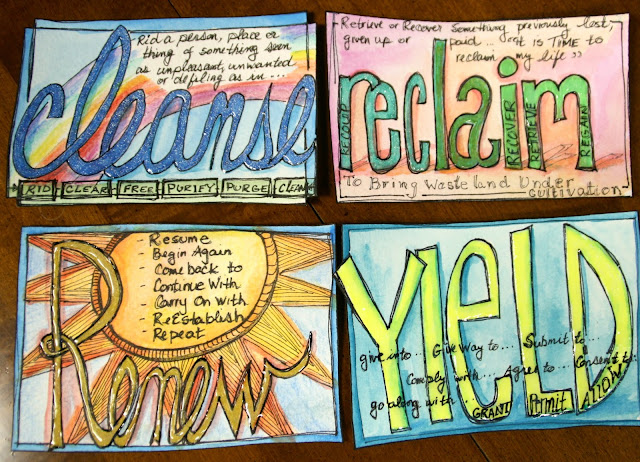 Rid a person, place or
thing of something seen
as unpleasant, unwanted
or defiling as in ...
cleanse
RID CLEAR FREE PURIFY PURGE CLEAN
Retrieve or Recover something previously lost,
given up or paid... "it is TIME to
reclaim my life"
reclaim
RECOVER
RETRIEVE
REGAIN
To Bring Wasteland Under
Cultivation
- Resume
- Begin Again
- Come back to
- Continue With
- Carry On With
- ReEstablish
- Repeat
Renew
YIELD
give into... Give way to... Submit to...
Comply with... Agree to... Consent to...
go along with... GRANT Permit Allow